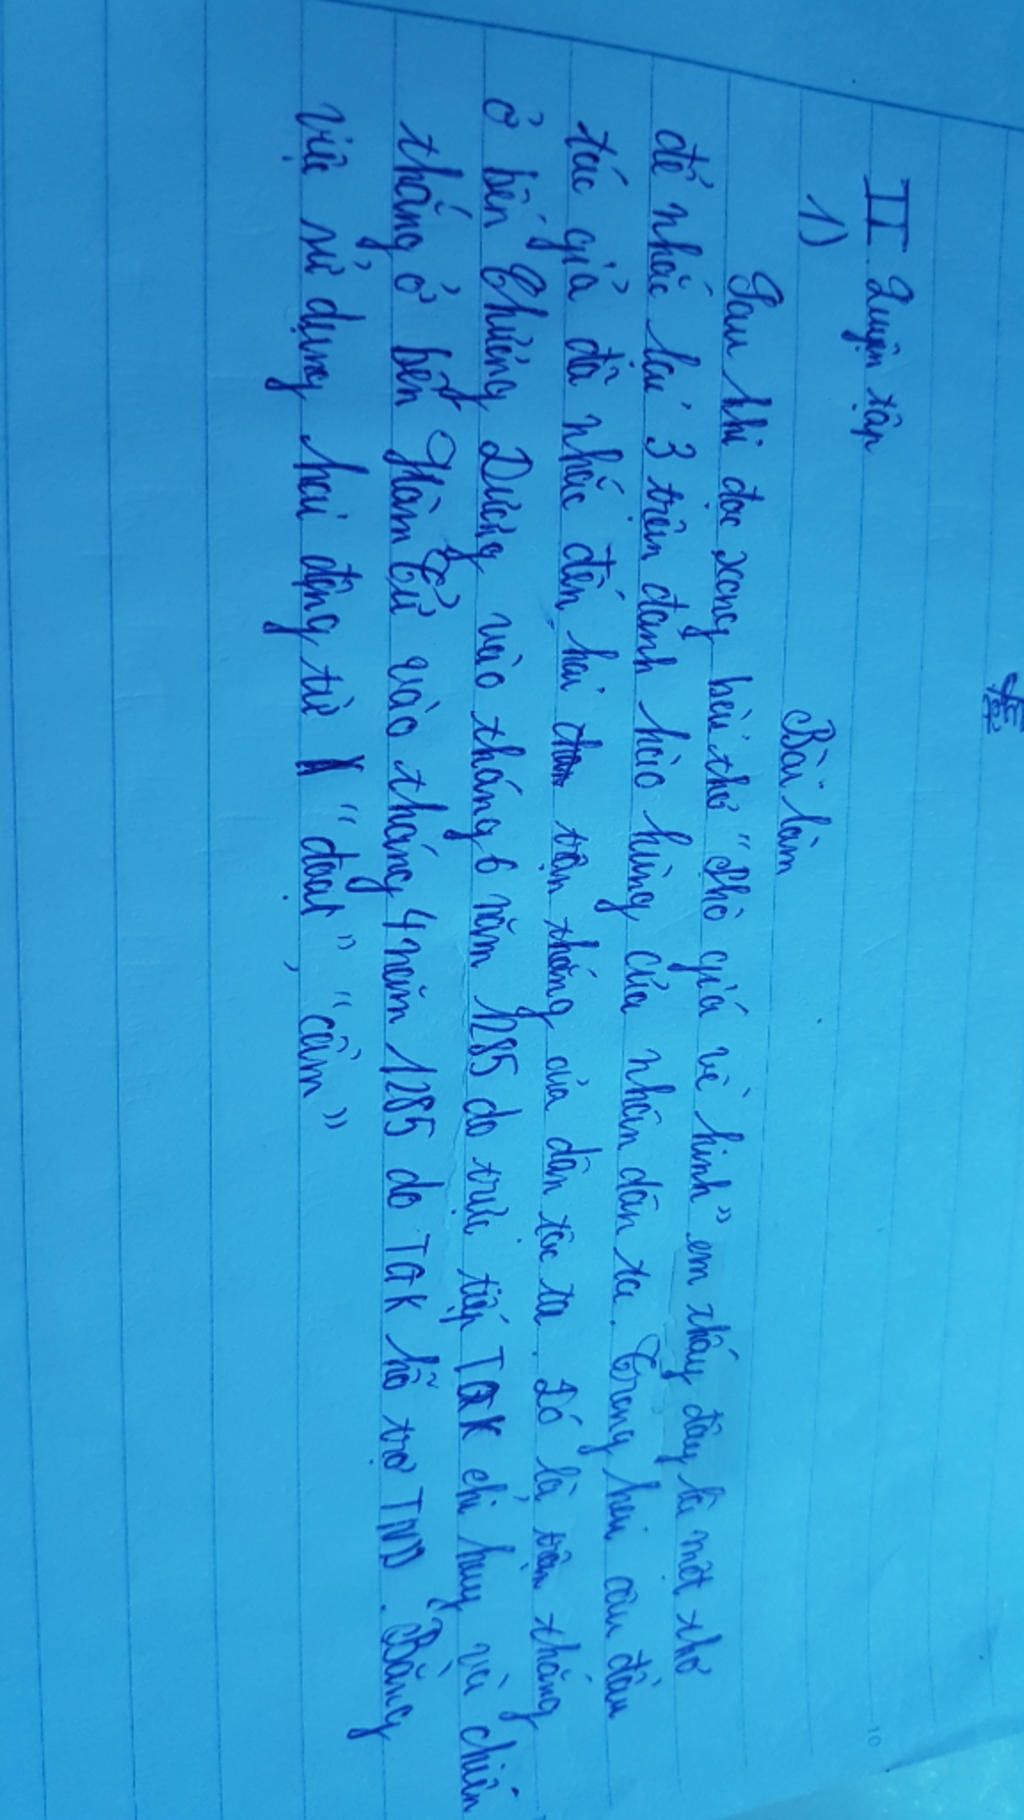 II Luyện tập
1)
Bài làm
Sau khi đọc xong bài thơ "Phò giá về kinh" em thấy đây là một thơ
để nhắc lại 3 trận đánh hào hùng của nhân dân ta. Trong hai câu đầu
tác giả đã nhắc đến hai trận thắng của dân tộc ta. Đó là trận thắng
ở bến Chương Dương vào tháng 6 năm 1285 do trực tiếp TQK chỉ huy và chiến
thắng ở bến Hàm Tử vào tháng 4 năm 1285 do TQK hỗ trợ TND. Bằng
việc sử dụng hai động từ "đoạt", "cầm"